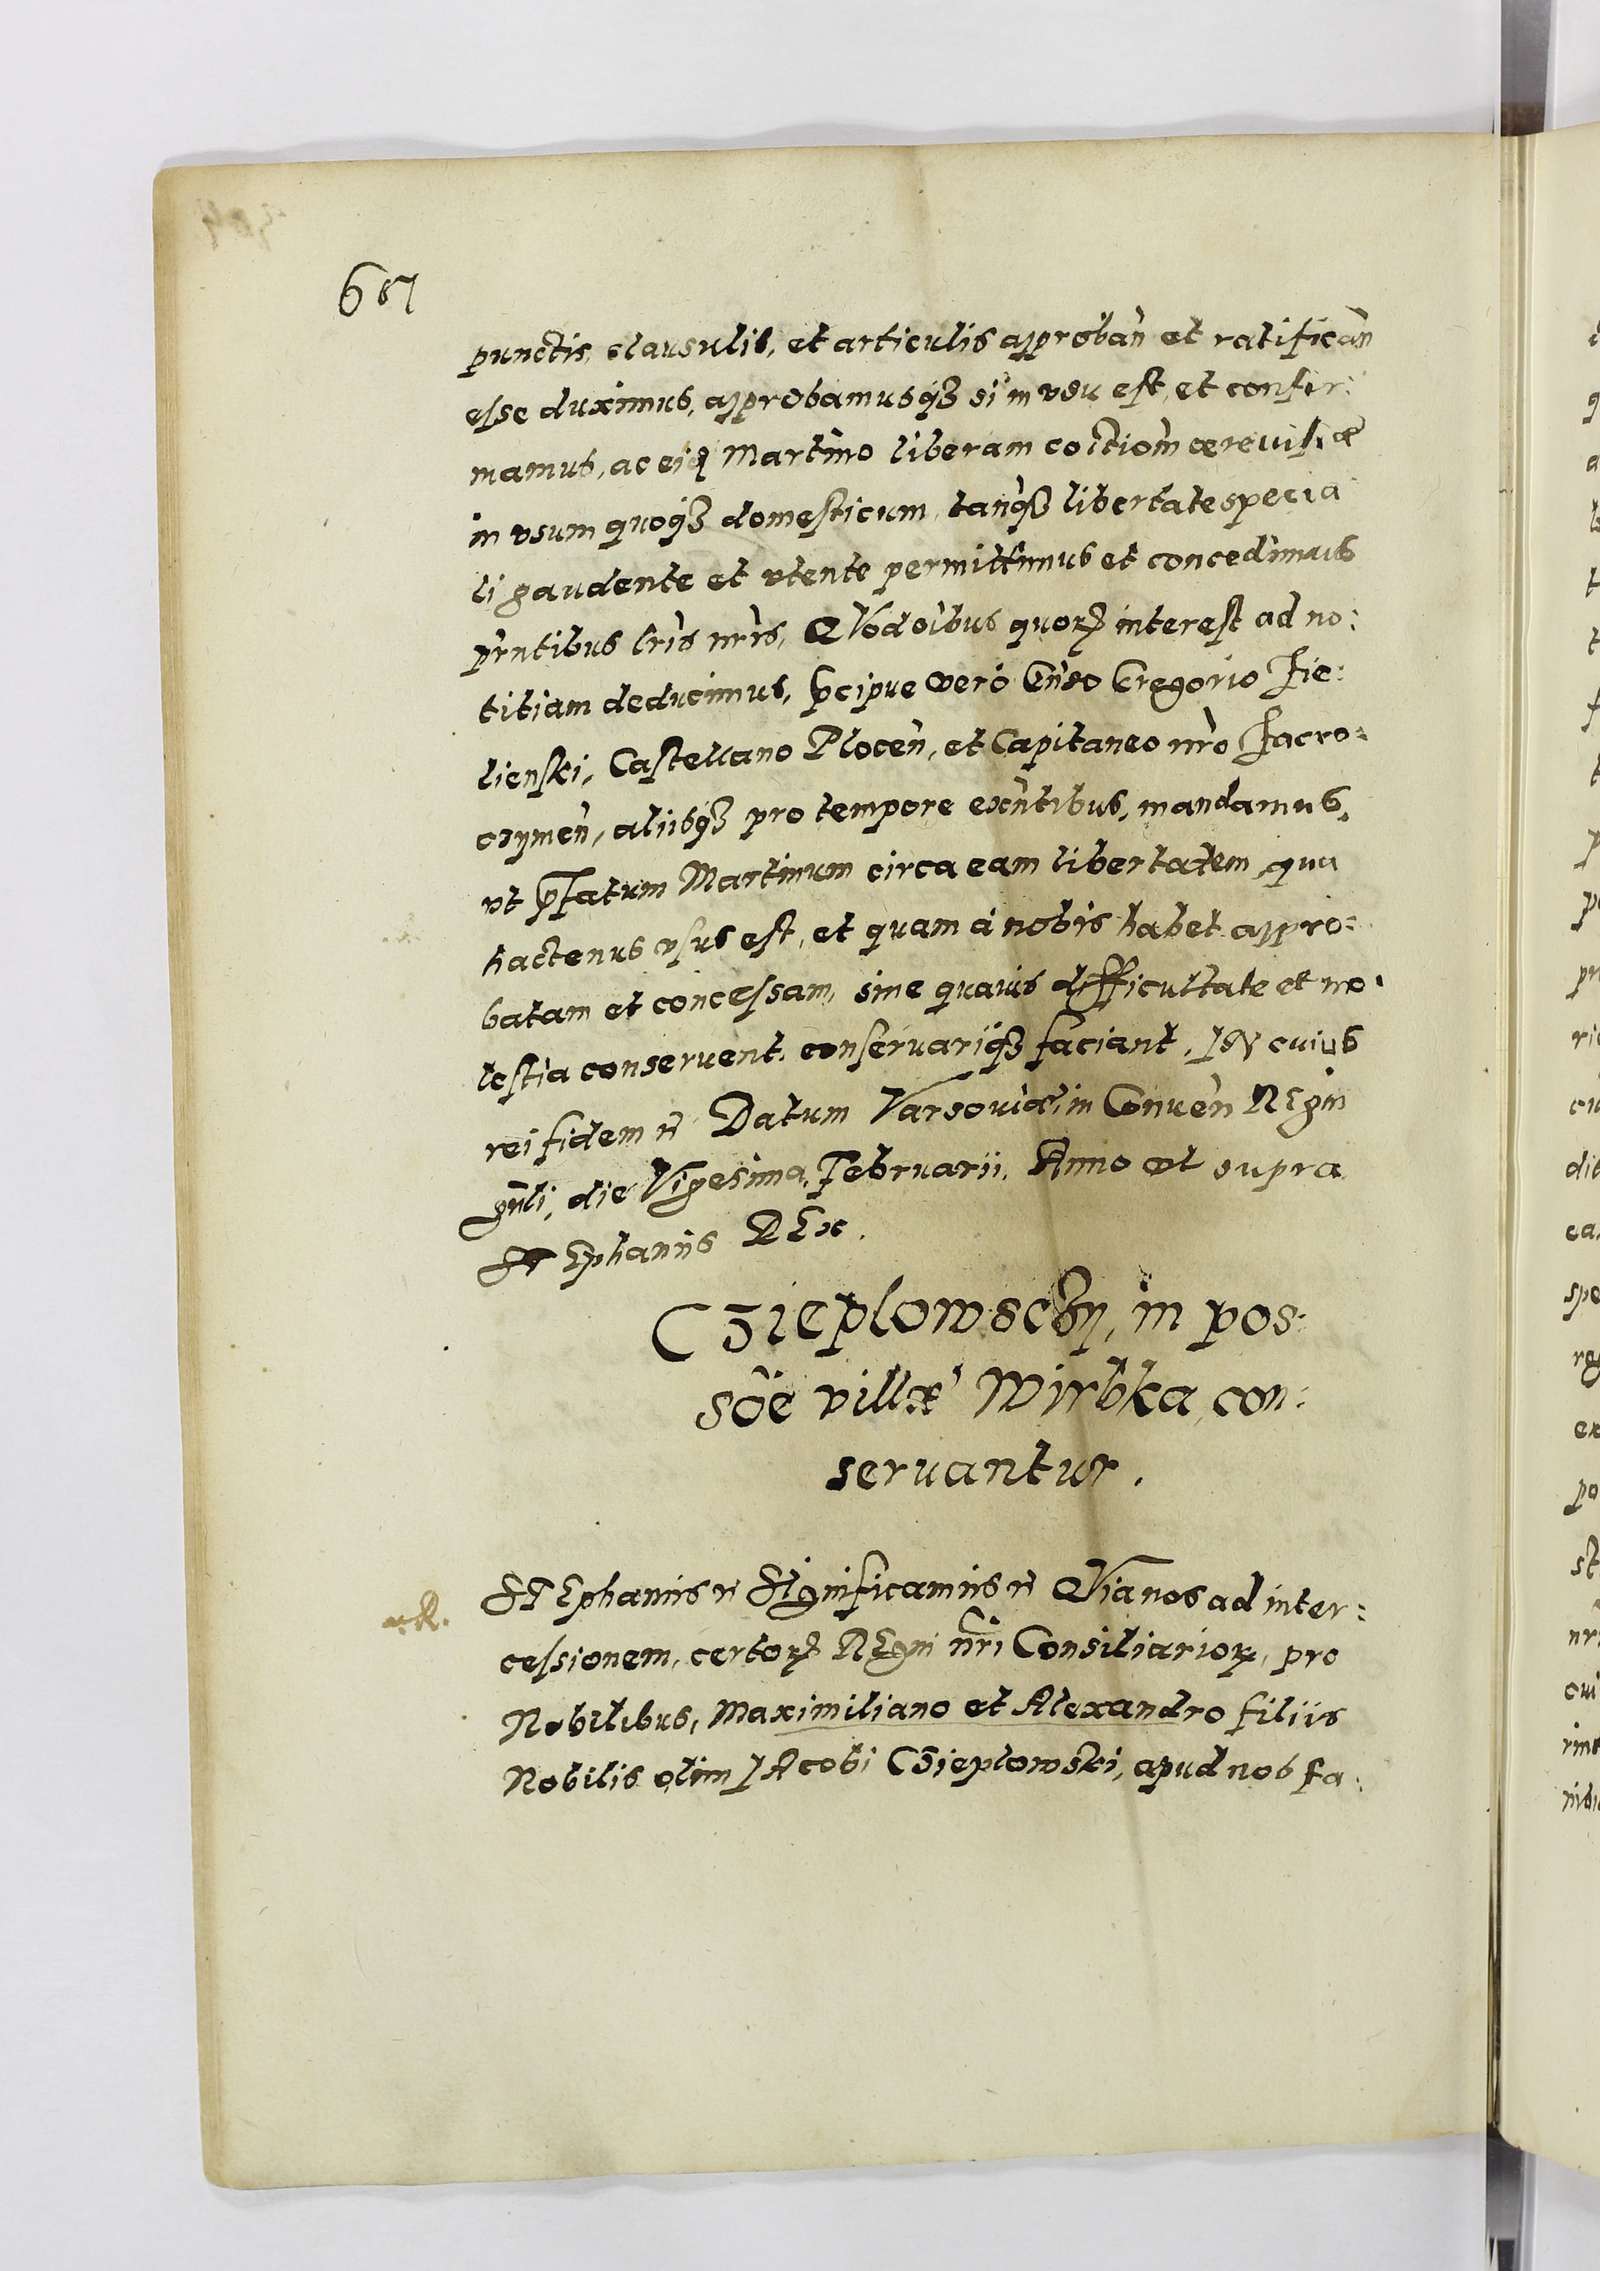 punctis, clausulis, et articulis approbañ et ratificañ
esse duximus, approbamusq́₃ si in vsu est, et confir:
mamus, ac eidȝ Martino liberam coctiom̃ cereuisiæ
in vsum quoq₃ domesticum, tanq̃₃ libertate specia
li gaudente et vtente permittimus et concedimus
pr̃ntibus lr̃is nr̃is, QVod oĩbus quorꝝ interest ad no:
titiam deducimus, p̃cipue vero Gñso Gregorio Zie:
lienski, Castellano Ploceñ, et Capitaneo nr̃o Zacro:
czymeñ, aliisq₃ pro tempore exñtibus, mandamus,
vt p̃fatum Martinum circa eam libertatem, qua
hactenus vsus est, et quam à nobis habet appro:
batam et concessam, sine quauis difficultate et mo:
lestia conseruent, conseruariq₃ faciant, IN cuius
rei fidem ñ Datum Varsouiæ, in Conueñ REgni
gñli, die Vigesima, Februarii, Anno vt supra
STEphanus REx.
CZieplowsczy, in pos:
sõe villæ Wirbka, con:
seruantur.
STEphanus ñ SIgnificamus ñ QVia nos ad inter:
cessionem, certorꝝ REgni nr̃i Consiliariorꝝ, pro
Nobilibus, Maximiliano et Alexandro filiis
Nobilis olim IAcobi CZieplowski, apud nos fa: